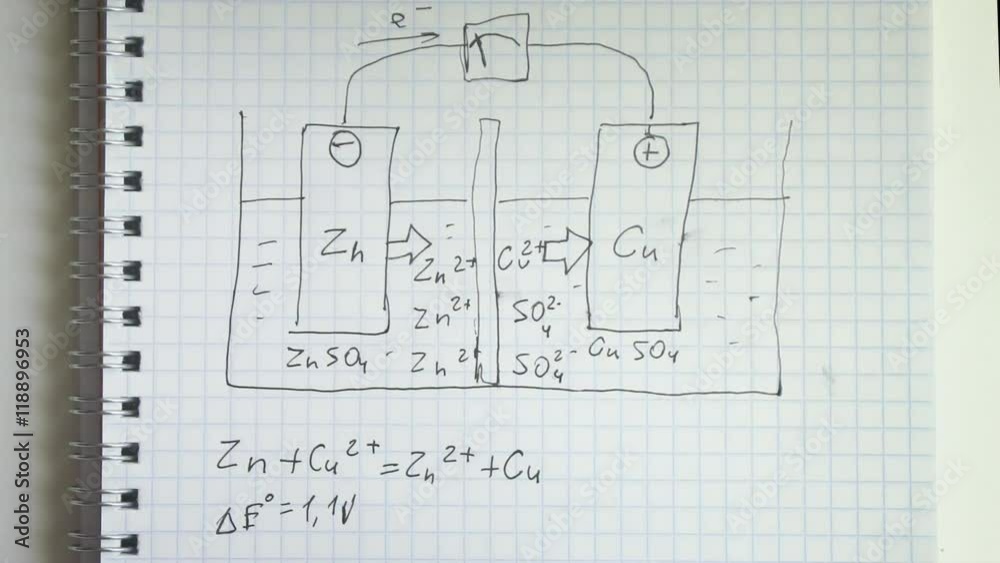 e⁻
− +
Zn Cu
Zn²⁺ Cu²⁺
Zn²⁺ SO₄²⁻
ZnSO₄ Zn²⁺ SO₄²⁻ CuSO₄
Zn + Cu²⁺ = Zn²⁺ + Cu
ΔE° = 1,1V
Adobe Stock | #118896953
Adobe Stock